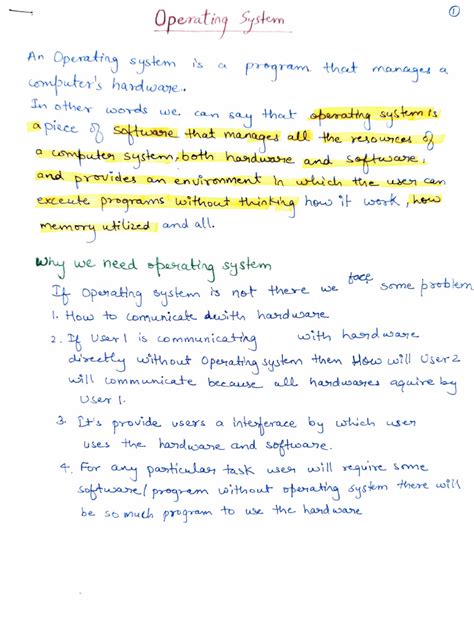 Operating System
1
An Operating system is a program that manages a
computer's hardware.
In other words we can say that operating system is
a piece of software that manages all the resources of
a computer system, both hardware and software,
and provides an environment in which the user can
execute programs without thinking how it work, how
memory utilized and all.
Why we need operating system
If Operating system is not there we face some problem
1. How to comunicate with hardware
2. If User 1 is communicating with hardware
directly without Operating system then How will User 2
will communicate because all hardwares aquire by
User 1.
3. It's provide users a interface by which user
uses the hardware and software.
4. For any particular task user will require some
software/program without operating system there will
be so much program to use the hardware